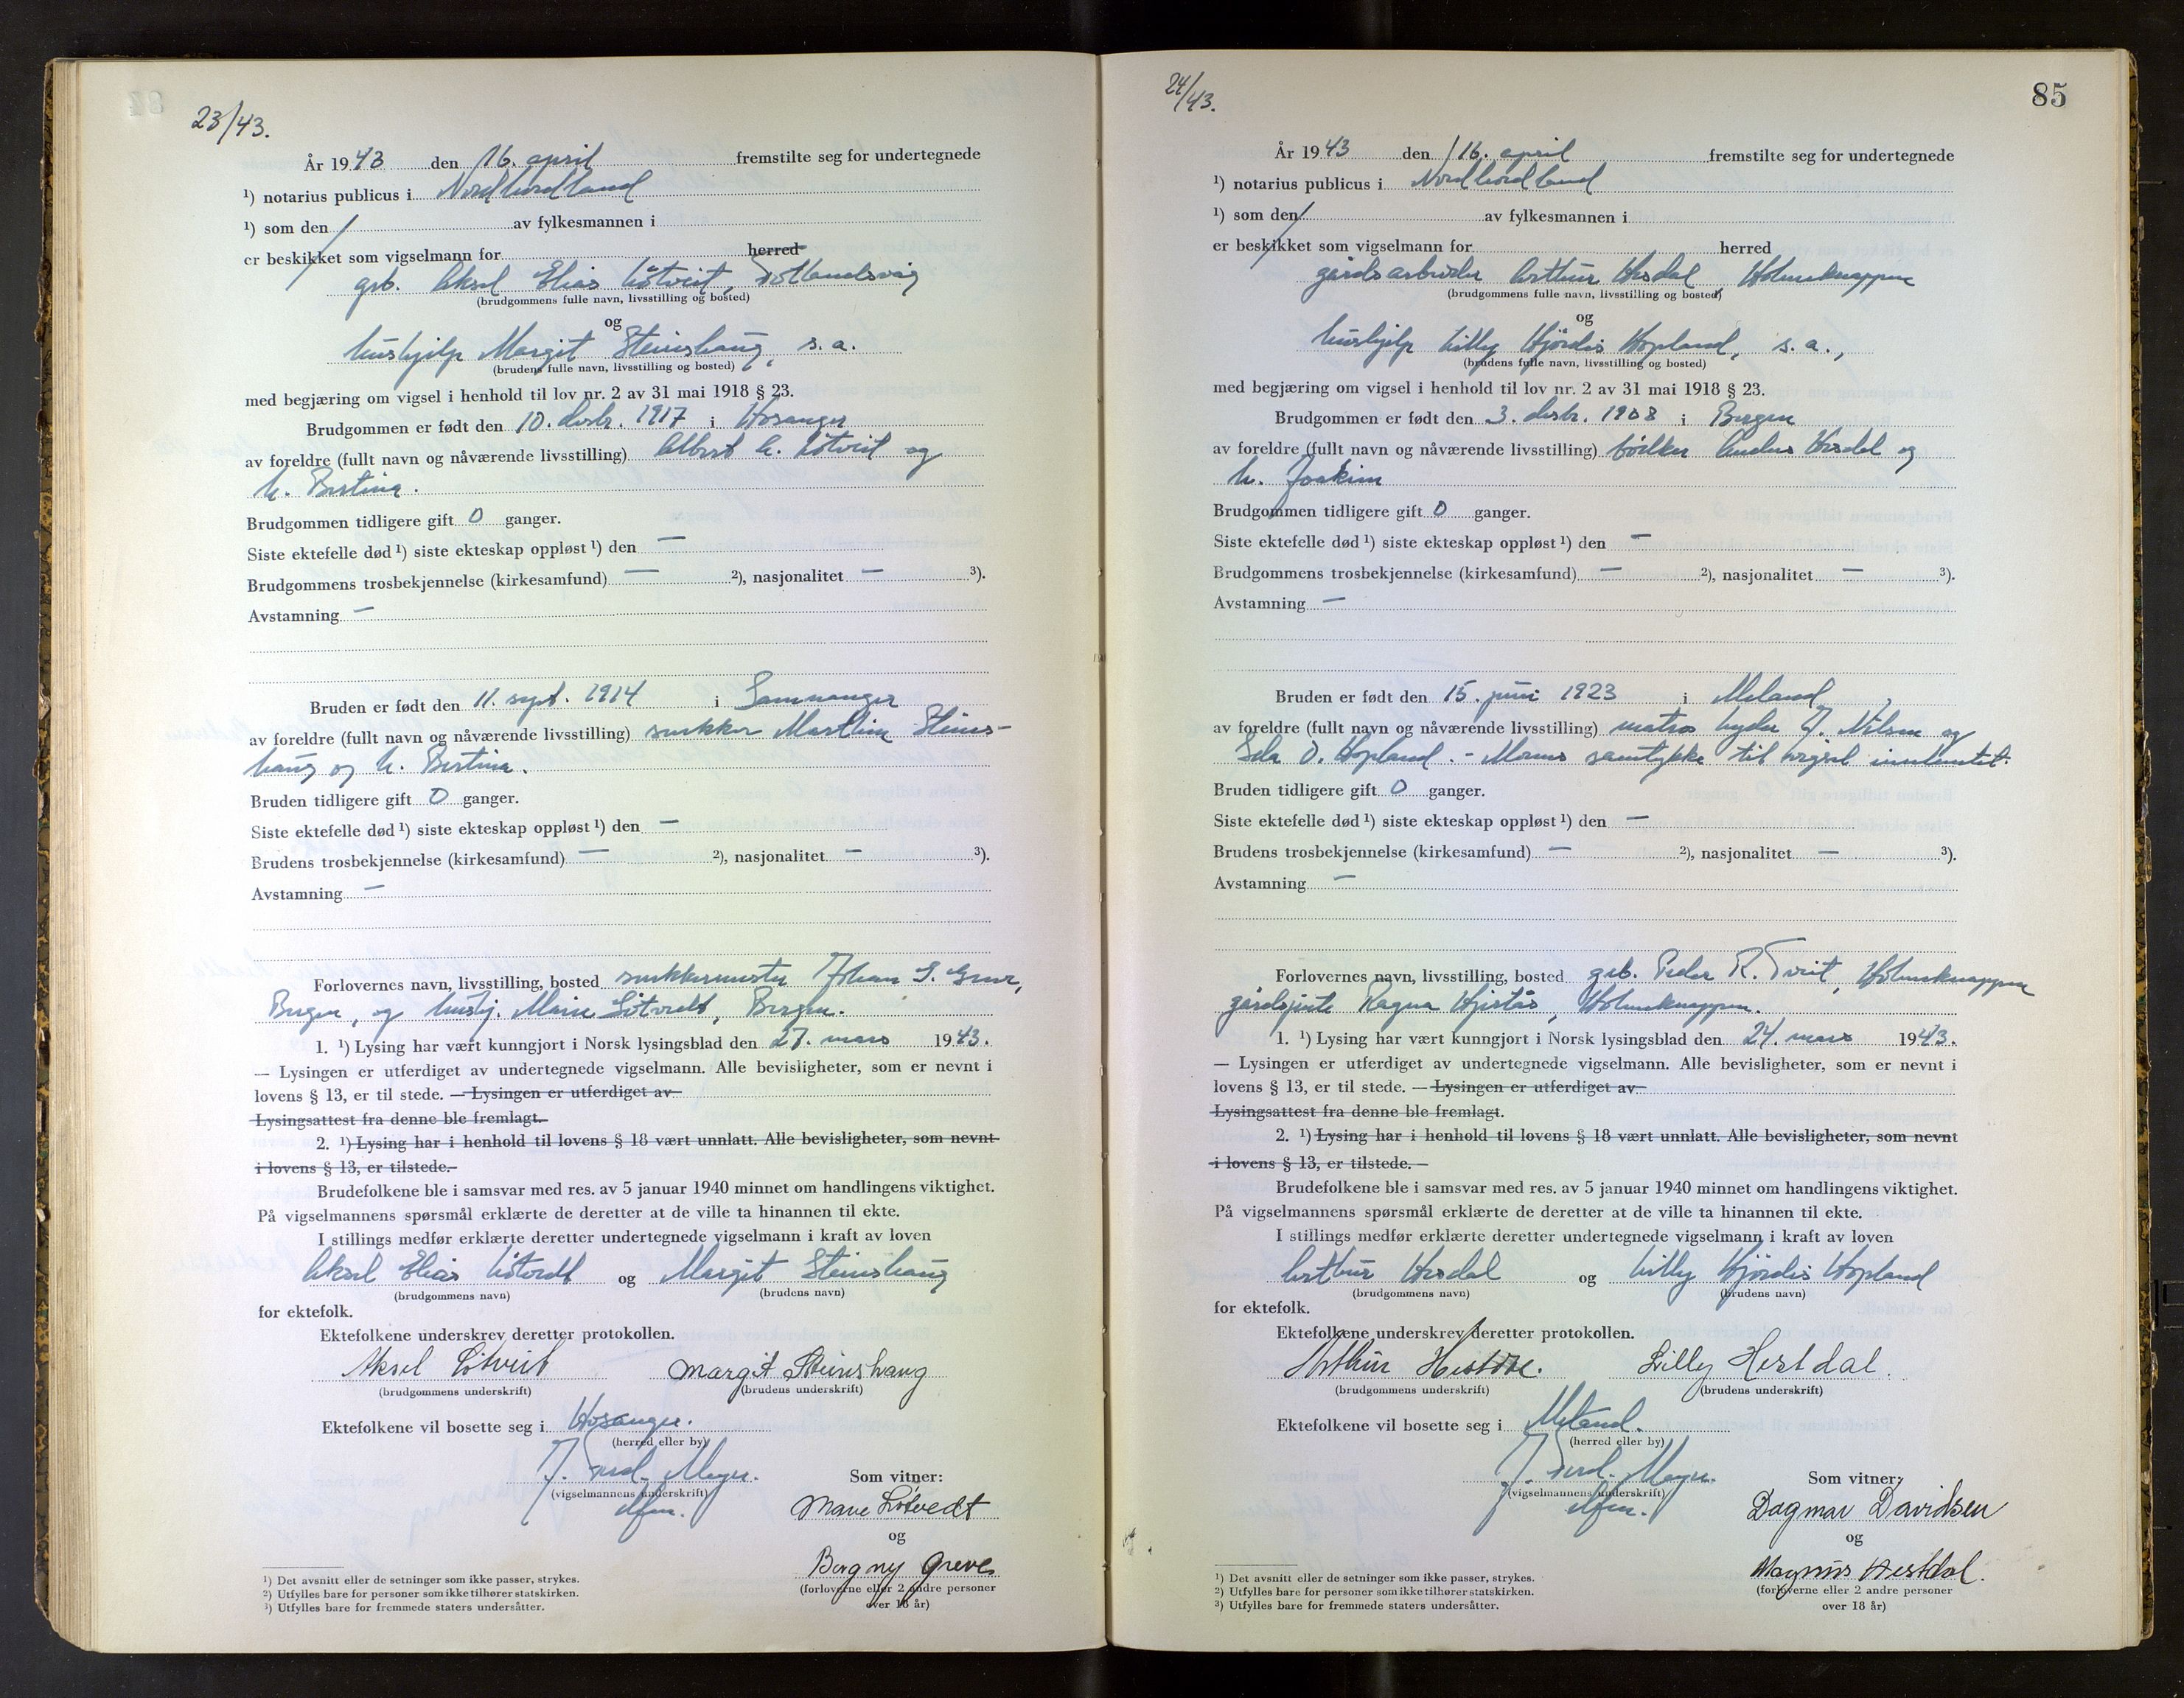 23/43.
År 1943 den 16. april fremstilte seg for undertegnede
¹) notarius publicus i Nordhordland
¹) som den av fylkesmannen i
er beskikket som vigselmann for herred
grb. Aksel Elias Løtveit,
(brudgommens fulle navn, livsstilling og bosted)
og
hushjelp Margit Steinshaug, s. a.
(brudens fulle navn, livsstilling og bosted)
med begjæring om vigsel i henhold til lov nr. 2 av 31 mai 1918 § 23.
Brudgommen er født den 10. desbr. 1917 i Hosanger
av foreldre (fullt navn og nåværende livsstilling) Albert A. Løtveit og
h. Bertina.
Brudgommen tidligere gift 0 ganger.
Siste ektefelle død ¹) siste ekteskap oppløst ¹) den —
Brudgommens trosbekjennelse (kirkesamfund) — ²), nasjonalitet — ³).
Avstamning —
Bruden er født den 11. sept. 1914 i Samnanger
av foreldre (fullt navn og nåværende livsstilling) snekker Marthin Steins-
haug og h. Bertina.
Bruden tidligere gift 0 ganger.
Siste ektefelle død ¹) siste ekteskap oppløst ¹) den —
Brudens trosbekjennelse (kirkesamfund) — ²), nasjonalitet — ³).
Avstamning —
Forlovernes navn, livsstilling, bosted snekkermester Johan S.
Bergen, og hushj. Marie Løtvedt, Bergen.
1. ¹) Lysing har vært kunngjort i Norsk lysingsblad den 27. mars 1943.
— Lysingen er utferdiget av undertegnede vigselmann. Alle bevisligheter, som er nevnt i
lovens § 13, er til stede. — Lysingen er utferdiget av
Lysingsattest fra denne ble fremlagt.
2. ¹) Lysing har i henhold til lovens § 18 vært unnlatt. Alle bevisligheter, som nevnt
i lovens § 13, er tilstede.
Brudefolkene ble i samsvar med res. av 5 januar 1940 minnet om handlingens viktighet.
På vigselmannens spørsmål erklærte de deretter at de ville ta hinannen til ekte.
I stillings medfør erklærte deretter undertegnede vigselmann i kraft av loven
Aksel Elias Løtvedt og Margit Steinshaug
(brudgommens navn) (brudens navn)
for ektefolk.
Ektefolkene underskrev deretter protokollen.
Aksel Løtveit Margit Steinshaug
(brudgommens underskrift) (brudens underskrift)
Ektefolkene vil bosette seg i Hosanger.
(herred eller by)
J. Ferd. Meyer.
(vigselmannens underskrift)
Som vitner:
Marie Løtvedt
og
Borgny Greve
(forloverne eller 2 andre personer
over 18 år)
¹) Det avsnitt eller de setninger som ikke passer, strykes.
²) Utfylles bare for personer som ikke tilhører statskirken.
³) Utfylles bare for fremmede staters undersåtter.
24/43.
85
År 1943 den 16. april fremstilte seg for undertegnede
¹) notarius publicus i Nordhordland
¹) som den av fylkesmannen i
er beskikket som vigselmann for herred
gårdsarbeider Arthur Hesdal Holmeknappen
(brudgommens fulle navn, livsstilling og bosted)
og
hushjelp Lilly Hjørdis Hopland, s. a.,
(brudens fulle navn, livsstilling og bosted)
med begjæring om vigsel i henhold til lov nr. 2 av 31 mai 1918 § 23.
Brudgommen er født den 3. desbr. 1908 i Bergen
av foreldre (fullt navn og nåværende livsstilling) bøkker Anders Hesdal og
h. Joakim
Brudgommen tidligere gift 0 ganger.
Siste ektefelle død ¹) siste ekteskap oppløst ¹) den —
Brudgommens trosbekjennelse (kirkesamfund) — ²), nasjonalitet — ³).
Avstamning —
Bruden er født den 15. juni 1923 i Meland
av foreldre (fullt navn og nåværende livsstilling) matros Lyder J. Nilsen og
Ida O. Hopland. - Morens samtykke til vigsel innhentet.
Bruden tidligere gift 0 ganger.
Siste ektefelle død ¹) siste ekteskap oppløst ¹) den —
Brudens trosbekjennelse (kirkesamfund) — ²), nasjonalitet — ³).
Avstamning —
Forlovernes navn, livsstilling, bosted grb. Peder R. Tveit, Holmeknappen
gårdsjente Ragna Hjertås, Holmeknappen.
1. ¹) Lysing har vært kunngjort i Norsk lysingsblad den 24. mars 1943.
— Lysingen er utferdiget av undertegnede vigselmann. Alle bevisligheter, som er nevnt i
lovens § 13, er til stede. — Lysingen er utferdiget av
Lysingsattest fra denne ble fremlagt.
2. ¹) Lysing har i henhold til lovens § 18 vært unnlatt. Alle bevisligheter, som nevnt
i lovens § 13, er tilstede.
Brudefolkene ble i samsvar med res. av 5 januar 1940 minnet om handlingens viktighet.
På vigselmannens spørsmål erklærte de deretter at de ville ta hinannen til ekte.
I stillings medfør erklærte deretter undertegnede vigselmann i kraft av loven
Arthur Hesdal og Lilly Hjørdis Hopland
(brudgommens navn) (brudens navn)
for ektefolk.
Ektefolkene underskrev deretter protokollen.
Arthur Hestdal. Lilly Hestdal.
(brudgommens underskrift) (brudens underskrift)
Ektefolkene vil bosette seg i Meland.
(herred eller by)
J. Ferd. Meyer.
(vigselmannens underskrift)
Som vitner:
Dagmar Davidsen
og
Magnus Hestdal.
(forloverne eller 2 andre personer
over 18 år)
¹) Det avsnitt eller de setninger som ikke passer, strykes.
²) Utfylles bare for personer som ikke tilhører statskirken.
³) Utfylles bare for fremmede staters undersåtter.